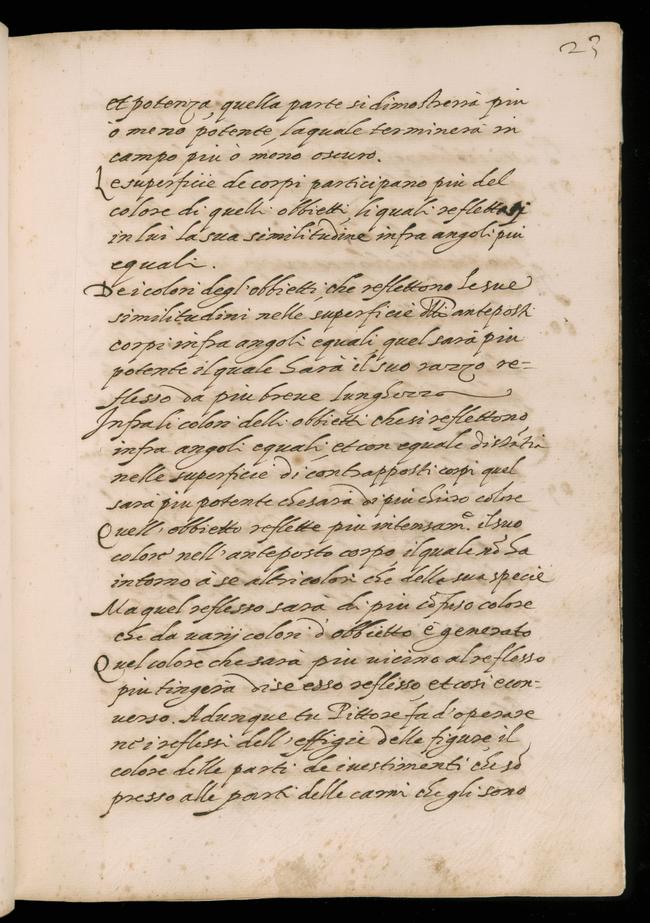 23
et potenza, quella parte si dimostrerrà piu
ò meno potente, laquale terminerà in
campo piu ò meno oscuro.
Le superficie de corpi participano piu del
colore di quelli obbietti, li quali reflettosi
in lui la sua similitudine infra angoli piu
eguali.
De i colori degl'obbietti, che reflettono le sue
similitudini nelle superficie dlli anteposti
corpi infra angoli equali quel sarà piu
potente il quale harà il suo razzo re=
flesso da piu breue lunghezza
Infra li colori delli obbietti che si reflettono
infra angoli equali et con equale distātia
nelle superficie di contrapposti corpi quel
sarà piu potente che sarà di piu chiaro colore
Quell'obbietto reflette piu intensam.e il suo
colore nell'anteposto corpo il quale nō ha
intorno à se altri colori che della sua specie
Ma quel reflesso sarà di piu cōfuso colore
che da varij colori d'obbietto è generato
Quel colore che sarà piu uicino al reflesso
piu tingerà di se esso reflesso, et cosi econ=
uerso. Adunque tu Pittore fa d'operare
ne i reflessi dell'effigie delle figure il
colore delle parti de i uestimenti che sō
presso alle parti delle carni che gli sono